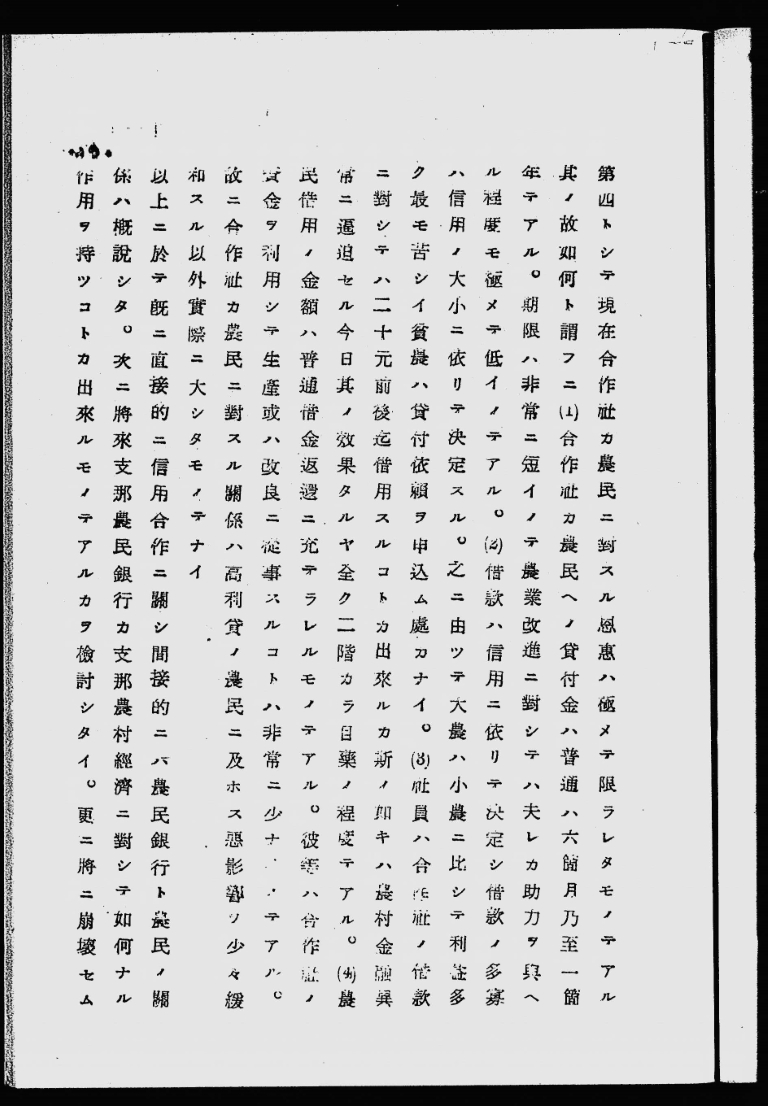 第四トシテ現在合作社カ農民ニ對スル恩惠ハ極メテ限ラレタモノテアル
其ノ故如何ト謂フニ(1)合作社カ農民ヘノ貸付金ハ普通ハ六箇月乃至一箇
年テアル。期限ハ非常ニ短イノテ農業改進ニ對シテハ夫レカ助力ヲ與ヘ
ル程度モ極メテ低イノテアル。(2)借款ハ信用ニ依リテ決定シ借款ノ多寡
ハ信用ノ大小ニ依リテ決定スル。之ニ由ツテ大農ハ小農ニ比シテ利益多
ク最モ苦シイ貧農ハ貸付依賴ヲ申込ム處カナイ。(3)社員ハ合作社ノ借款
ニ對シテハ二十元前後迄借用スルコトカ出來ルカ斯ノ如キハ農村金融異
常ニ逼迫セル今日其ノ效果タルヤ全ク二階カラ目藥ノ程度テアル。(4)農
民借用ノ金額ハ普通借金返還ニ充テラレルモノテアル。彼等ハ合作社ノ
資金ヲ利用シテ生產或ハ改良ニ從事スルコトハ非常ニ少ナ テアル。
故ニ合作社カ農民ニ對スル關係ハ高利貸ノ農民ニ及ホス惡影響ヲ少々緩
和スル以外實際ニ大シタモノテナイ
以上ニ於テ旣ニ直接的ニ信用合作ニ關シ間接的ニハ農民銀行ト農民ノ關
係ハ槪說シタ。次ニ將來支那農民銀行カ支那農村經濟ニ對シテ如何ナル
作用ヲ持ツコトカ出來ルモノテアルカヲ檢討シタイ。更ニ將ニ崩壞セム